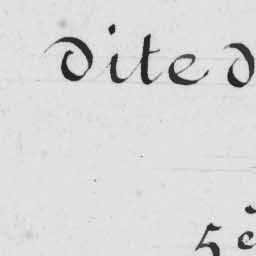 dite d
5e